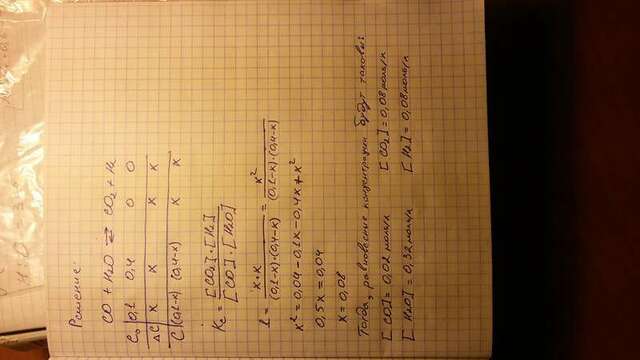 Решение:
CO + H2O ⇄ CO2 + H2
C0 0,1 0,4 0 0
ΔC x x x x
C (0,1-x) (0,4-x) x x
Kc = [CO2]·[H2] / [CO]·[H2O]
1 = x·x / (0,1-x)·(0,4-x) = x² / (0,1-x)·(0,4-x)
x² = 0,04 - 0,1x - 0,4x + x²
0,5x = 0,04
x = 0,08
Тогда, равновесные концентрации будут таковы:
[CO] = 0,02 моль/л [CO2] = 0,08 моль/л
[H2O] = 0,32 моль/л [H2] = 0,08 моль/л